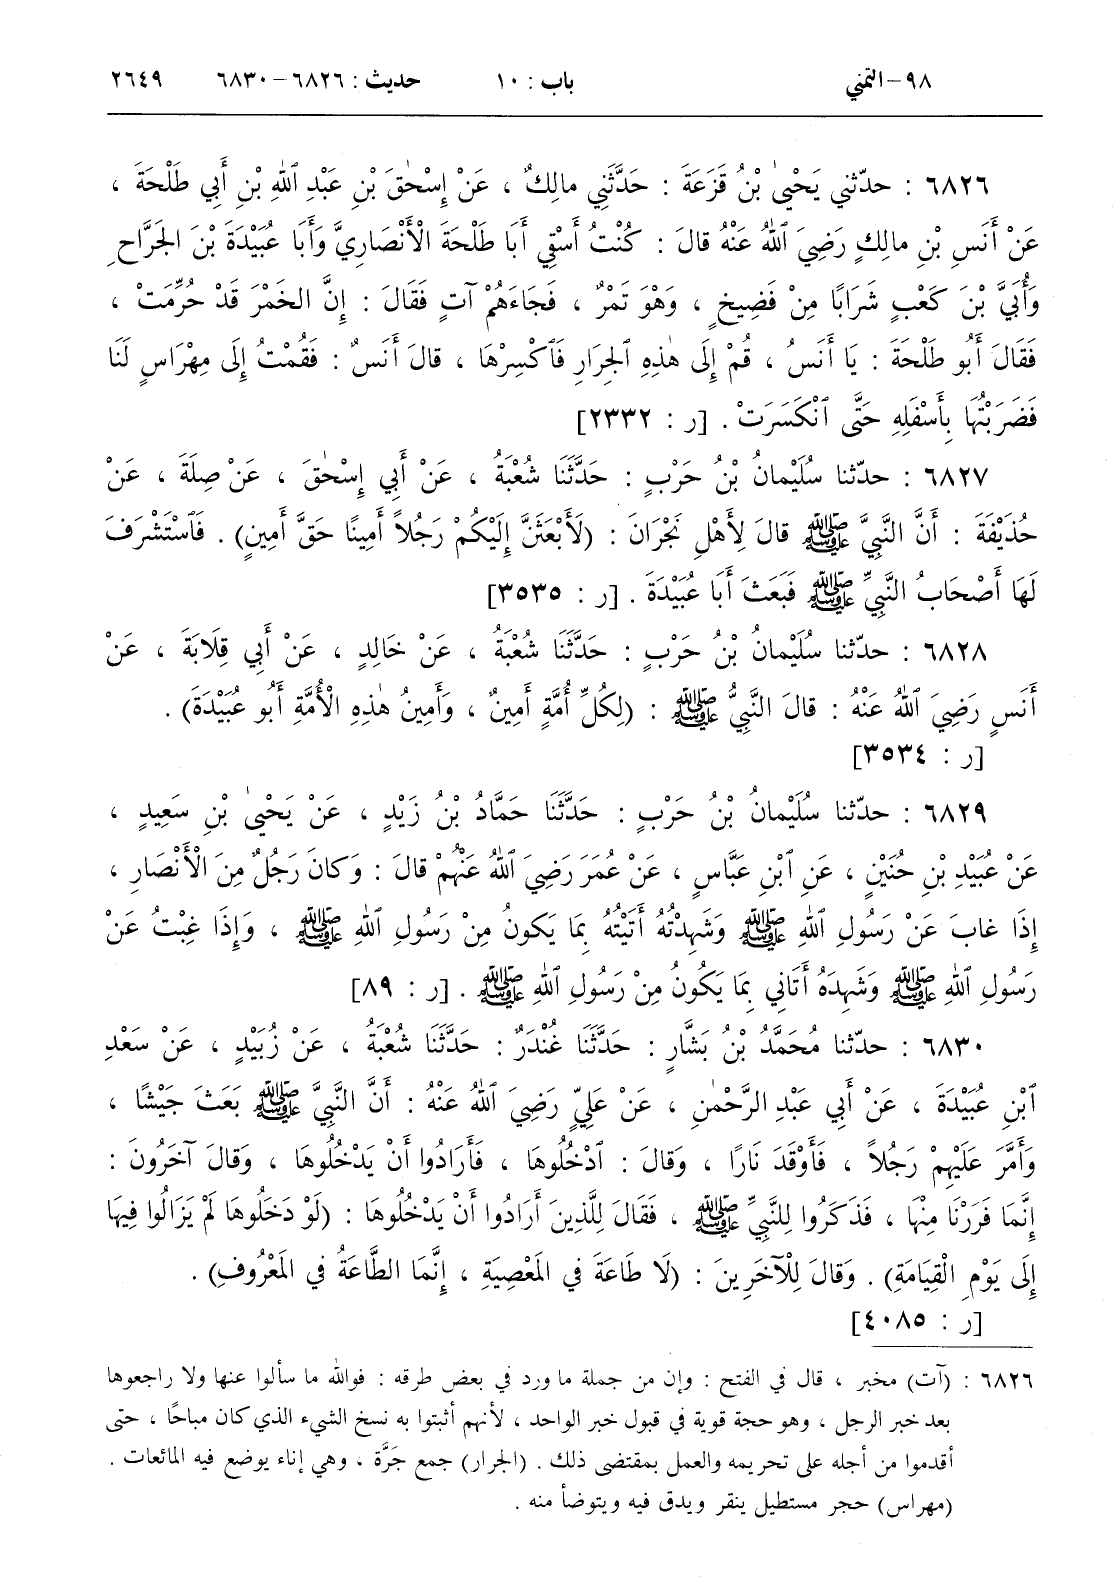 ٩٨-التمني باب : ١٠ حديث : ٦٨٢٦-٦٨٣٠ ٢٦٤٩
٦٨٢٦ : حدّثني يَحْيىٰ بْنُ قَزَعَةَ : حَدَّثَنِي مالِكٌ ، عَنْ إِسْحٰقَ بْنِ عَبْدِ ٱللهِ بْنِ أَبِي طَلْحَةَ ،
عَنْ أَنَسِ بْنِ مالِكٍ رَضِيَ ٱللهُ عَنْهُ قالَ : كُنْتُ أَسْقِي أَبَا طَلْحَةَ الْأَنْصَارِيَّ وَأَبَا عُبَيْدَةَ بْنَ الجَرَّاحِ
وَأُبَيَّ بْنَ كَعْبٍ شَرَابًا مِنْ فَضِيخٍ ، وَهْوَ تَمْرٌ ، فَجَاءَهُمْ آتٍ فَقَالَ : إِنَّ الخَمْرَ قَدْ حُرِّمَتْ ،
فَقَالَ أَبُو طَلْحَةَ : يَا أَنَسُ ، قُمْ إِلَى هٰذِهِ الْجِرَارِ فَٱكْسِرْهَا ، قالَ أَنَسٌ : فَقُمْتُ إِلَى مِهْرَاسٍ لَنَا
فَضَرَبْتُهَا بِأَسْفَلِهِ حَتَّى ٱنْكَسَرَتْ . [ر : ٢٣٣٢]
٦٨٢٧ : حدّثنا سُلَيْمانُ بْنُ حَرْبٍ : حَدَّثَنَا شُعْبَةُ ، عَنْ أَبِي إِسْحٰقَ ، عَنْ صِلَةَ ، عَنْ
حُذَيْفَةَ : أَنَّ النَّبِيَّ ﷺ قالَ لِأَهْلِ نَجْرَانَ : (لَأَبْعَثَنَّ إِلَيْكُمْ رَجُلاً أَمِينًا حَقَّ أَمِينٍ) . فَٱسْتَشْرَفَ
لَهَا أَصْحَابُ النَّبِيِّ ﷺ فَبَعَثَ أَبَا عُبَيْدَةَ . [ر : ٣٥٣٥]
٦٨٢٨ : حدّثنا سُلَيْمانُ بْنُ حَرْبٍ : حَدَّثَنَا شُعْبَةُ ، عَنْ خَالِدٍ ، عَنْ أَبِي قِلَابَةَ ، عَنْ
أَنَسٍ رَضِيَ ٱللهُ عَنْهُ : قالَ النَّبِيُّ ﷺ : (لِكُلِّ أُمَّةٍ أَمِينٌ ، وَأَمِينُ هٰذِهِ الْأُمَّةِ أَبُو عُبَيْدَةَ) .
[ر : ٣٥٣٤]
٦٨٢٩ : حدّثنا سُلَيْمانُ بْنُ حَرْبٍ : حَدَّثَنَا حَمَّادُ بْنُ زَيْدٍ ، عَنْ يَحْيىٰ بْنِ سَعِيدٍ ،
عَنْ عُبَيْدِ بْنِ حُنَيْنٍ ، عَنِ ٱبْنِ عَبَّاسٍ ، عَنْ عُمَرَ رَضِيَ ٱللهُ عَنْهُمْ قالَ : وَكانَ رَجُلٌ مِنَ الْأَنْصَارِ ،
إِذَا غابَ عَنْ رَسُولِ ٱللهِ ﷺ وَشَهِدْتُهُ أَتَيْتُهُ بِمَا يَكُونُ مِنْ رَسُولِ ٱللهِ ﷺ ، وَإِذَا غِبْتُ عَنْ
رَسُولِ ٱللهِ ﷺ وَشَهِدَهُ أَتَانِي بِمَا يَكُونُ مِنْ رَسُولِ ٱللهِ ﷺ . [ر : ٨٩]
٦٨٣٠ : حدّثنا مُحَمَّدُ بْنُ بَشَّارٍ : حَدَّثَنَا غُنْدَرٌ : حَدَّثَنَا شُعْبَةُ ، عَنْ زُبَيْدٍ ، عَنْ سَعْدِ
ٱبْنِ عُبَيْدَةَ ، عَنْ أَبِي عَبْدِ الرَّحْمٰنِ ، عَنْ عَلِيٍّ رَضِيَ ٱللهُ عَنْهُ : أَنَّ النَّبِيَّ ﷺ بَعَثَ جَيْشًا ،
وَأَمَّرَ عَلَيْهِمْ رَجُلاً ، فَأَوْقَدَ نَارًا ، وَقالَ : ٱدْخُلُوهَا ، فَأَرَادُوا أَنْ يَدْخُلُوهَا ، وَقالَ آخَرُونَ :
إِنَّمَا فَرَرْنَا مِنْهَا ، فَذَكَرُوا لِلنَّبِيِّ ﷺ ، فَقَالَ لِلَّذِينَ أَرَادُوا أَنْ يَدْخُلُوهَا : (لَوْ دَخَلُوهَا لَمْ يَزَالُوا فِيهَا
إِلَى يَوْمِ الْقِيَامَةِ) . وَقالَ لِلْآخَرِينَ : (لَا طَاعَةَ فِي المَعْصِيَةِ ، إِنَّمَا الطَّاعَةُ فِي المَعْرُوفِ) .
[ر : ٤٠٨٥]
٦٨٢٦ : (آت) مخبر ، قال في الفتح : وإن من جملة ما ورد في بعض طرقه : فوالله ما سألوا عنها ولا راجعوها
بعد خبر الرجل ، وهو حجة قوية في قبول خبر الواحد ، لأنهم أثبتوا به نسخ الشيء الذي كان مباحًا ، حتى
أقدموا من أجله على تحريمه والعمل بمقتضى ذلك . (الجرار) جمع جَرَّة ، وهي إناء يوضع فيه المائعات .
(مهراس) حجر مستطيل ينقر ويدق فيه ويتوضأ منه .